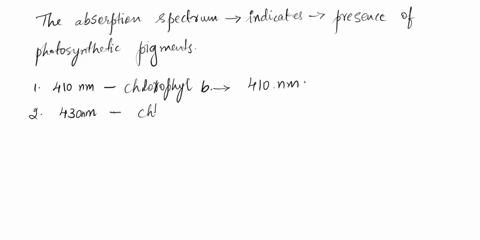 The absorption spectrum → indicates → presence of
photosynthetic pigments.
1. 410 nm - chlorophyl b. → 410 nm.
2. 430nm - chl